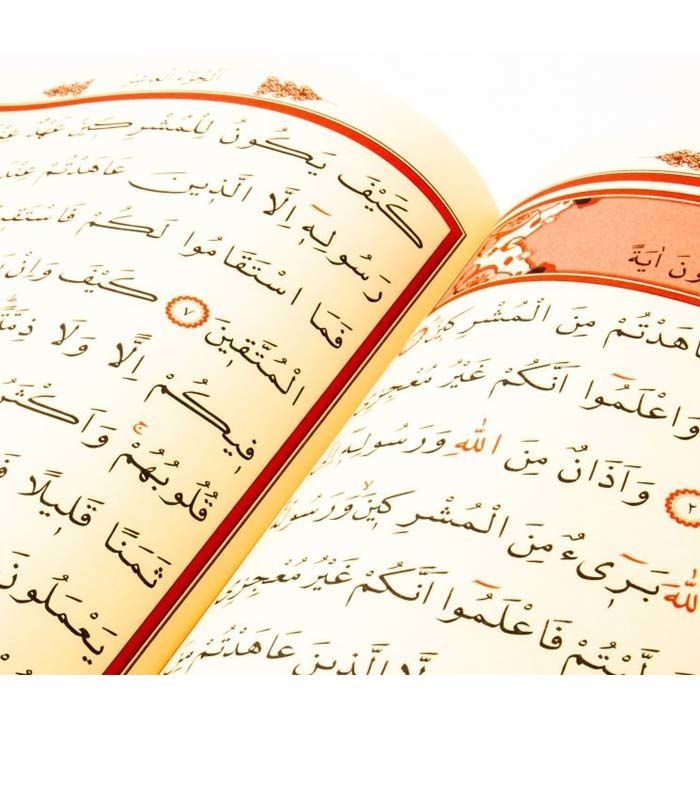 اٰيَةً
مِنَ الْمُشْرِكِينَ
وَاعْلَمُوا اَنَّكُمْ غَيْرُ مُعْجِزِي
٢ وَاَذَانٌ مِنَ اللّٰهِ وَرَسُولِهِ
اللّٰهَ بَرِىءٌ مِنَ الْمُشْرِكِينَ وَرَسُولُهُ
فَاعْلَمُوا اَنَّكُمْ غَيْرُ مُعْجِزِي
اِلَّا الَّذِينَ عَاهَدْتُمْ مِنَ
كَيْفَ يَكُونُ لِلْمُشْرِكِينَ عَهْدٌ عِنْدَ
رَسُولِهِ اِلَّا الَّذِينَ عَاهَدْتُمْ عِنْدَ
فَمَا اسْتَقَامُوا لَكُمْ فَاسْتَقِيمُوا
الْمُتَّقِينَ ٧ كَيْفَ وَاِنْ
فِيكُمْ اِلًّا وَلَا ذِمَّةً
قُلُوبُهُمْ وَاَكْثَرُ
ثَمَنًا قَلِيلًا
يَعْمَلُونَ